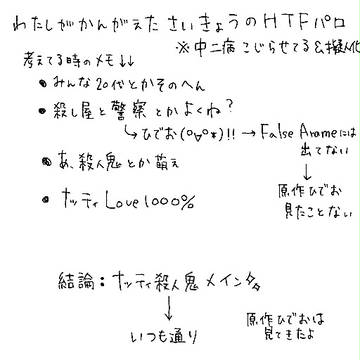 わたしがかんがえた さいきょうのHTFパロ
※中二病 こじらせてる&擬人化
考えてる時のメモ↓↓
・みんな20代とかそのへん
・殺し屋と警察とかよくね?
↳ひでお(°∀°*)!! → False Alarmには
出てない
↓
原作ひでお
見たことない
・あ、殺人鬼とか萌え
・ナッティLove1000%
結論:ナッティ殺人鬼メインタ゛
↓
いつも通り
原作ひでおは
見てきたよ